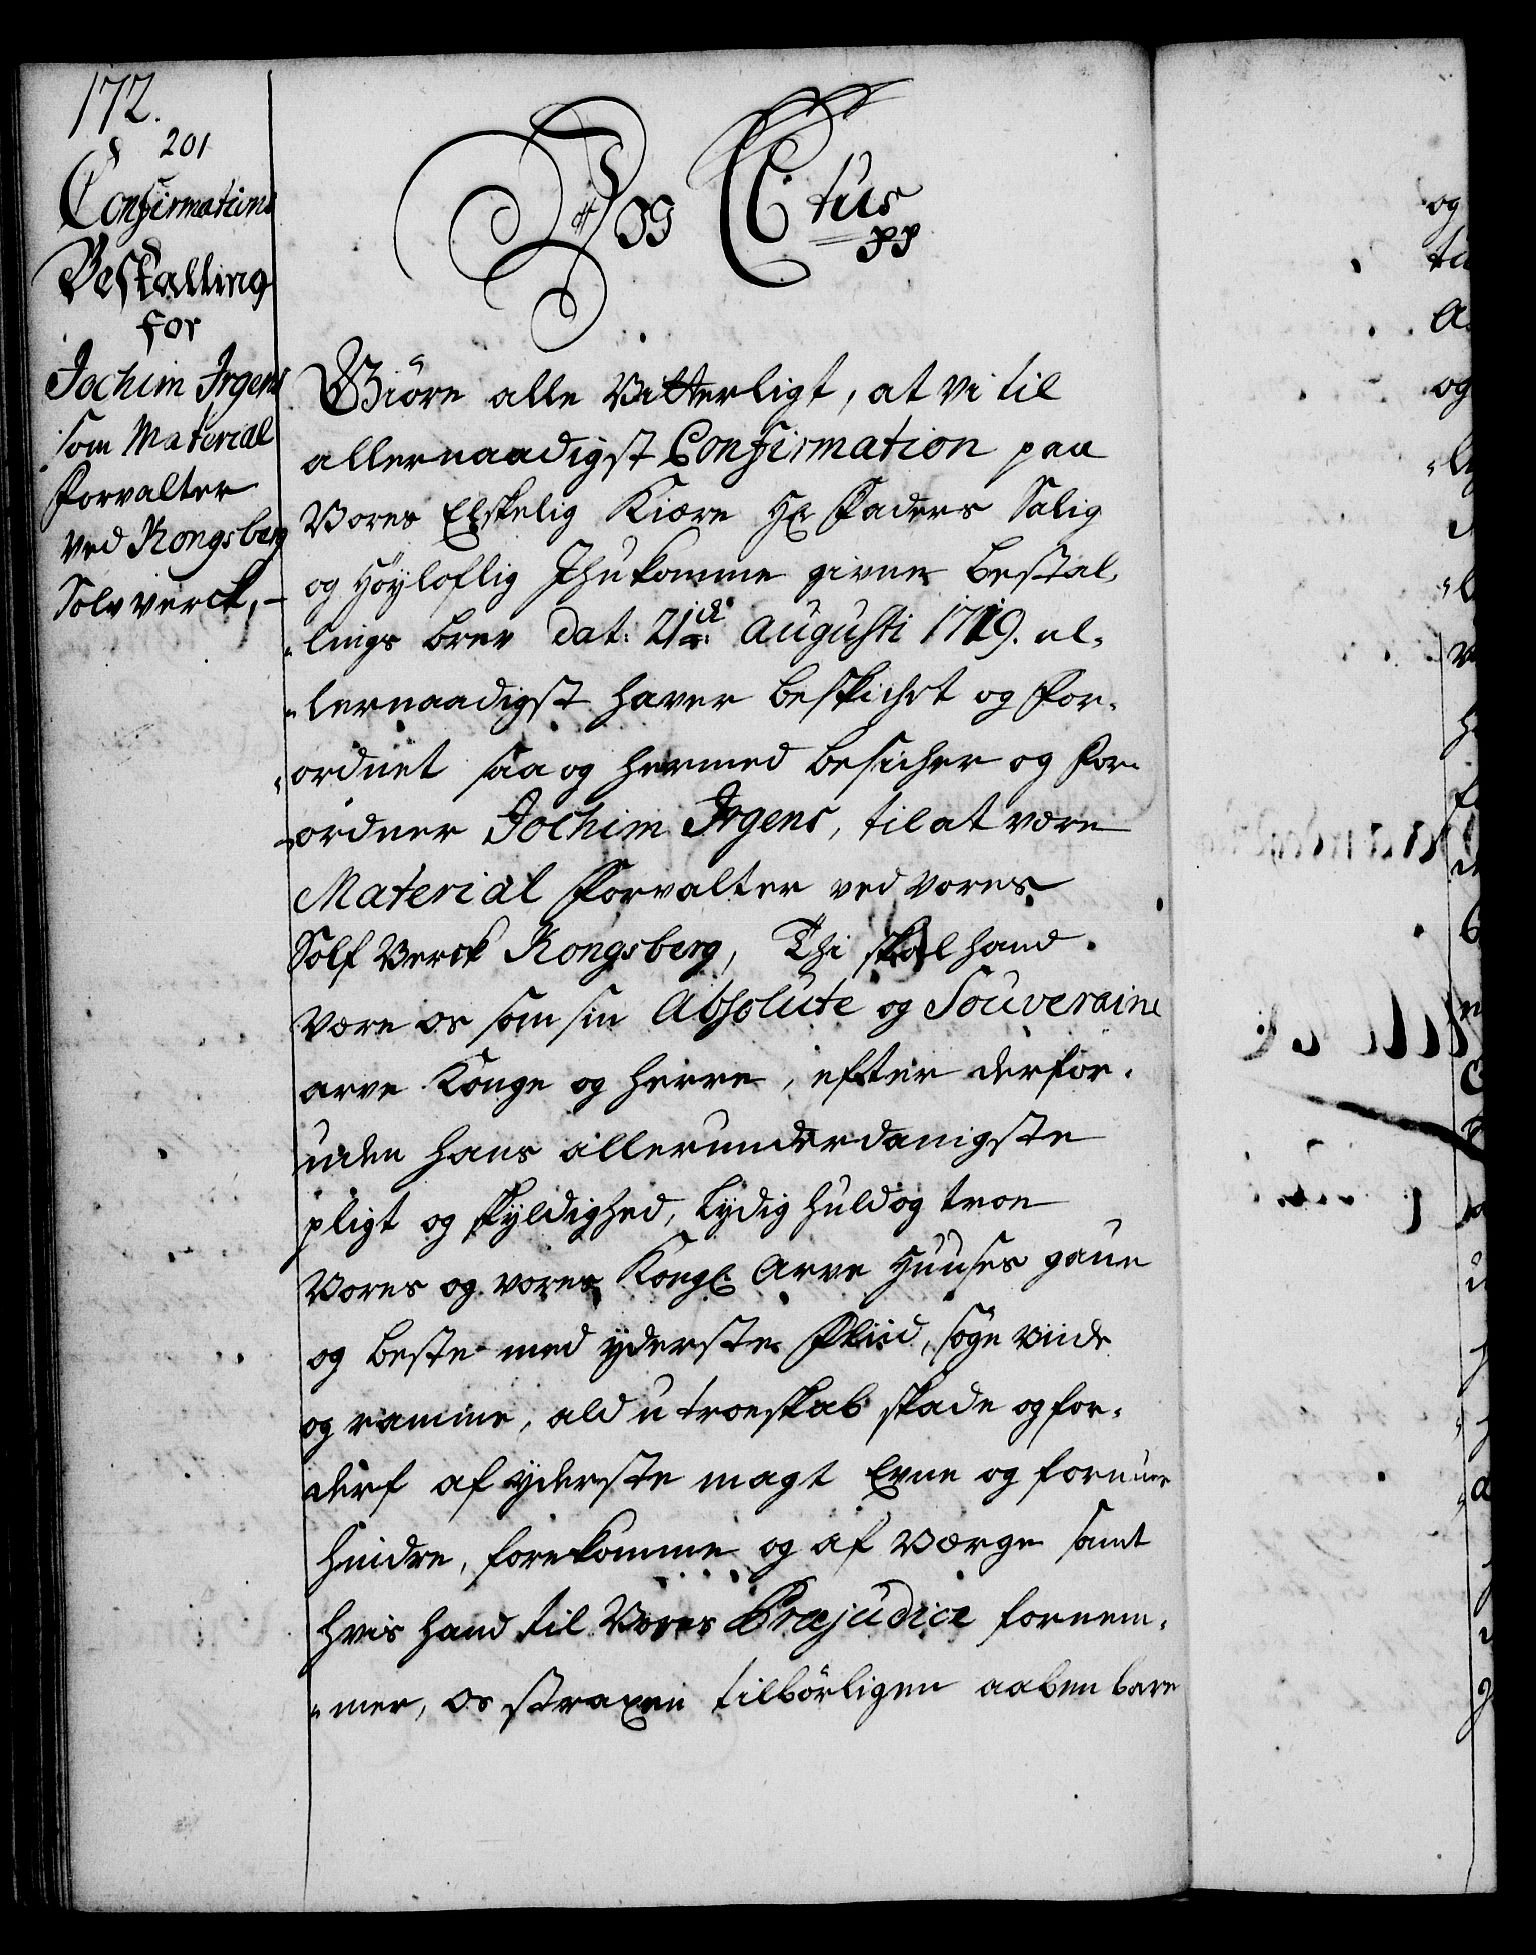 172.
201
Confirmations
Bestalling
for
Jochim Irgens
som Material
Forvalter
ved Kongsberg
Sølvverck,
Jog C 6tus
pp
Giøre alle Vitterligt, at vi til
allernaadigst Confirmation paa
Vores Elskelig Kiære Hr Faders Salig
og Høyloflig Ihukomme givne bestal,
„lings brev dat: 21de Augusti 1719. al,
„lernaadigst haver beskichet og for,
„ordnet saa og hermed beskicher og for,
„ordner Jochim Irgens, til at være
Material Forvalter ved vores
Sølf Verck Kongsberg, Thi skal hand
være os som sin Absolute og Souveraine
arve Konge og Herre, efter derfor,
uden hans allerunderdanigste
pligt og skyldighed, lydig huld og troe
Vores og vores Kongl. Arve Huuses gaun
og beste med yderste Fliid, søge viide
og ramme, ald utroeskab skade og for,
derf af yderste magt Evne og formue
hindre, forekomme og af værge samt
hvis hand til Vores Præjudice fornem,
„mer, os straxen tilbørligen aabenbare